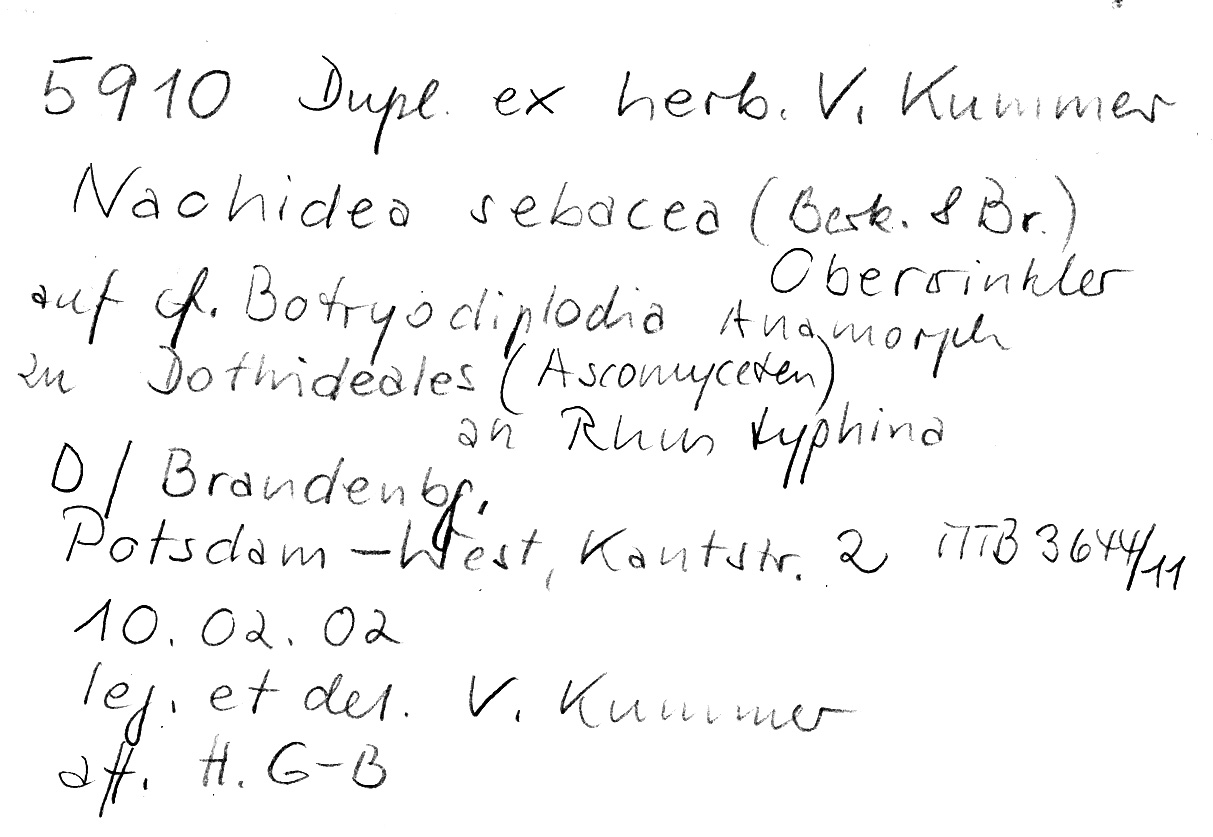 5910 Dupl. ex herb. V. Kummer
Nachidea sebacea (Berk. & Br.)
Oberwinkler
auf cf. Botryodiplodia Anamorph
zu Dothideales (Ascomyceten)
an Rhus typhina
D/ Brandenbg.
Potsdam-West, Kantstr. 2 MTB 3644/11
10.02.02
leg. et det. V. Kummer
aff. H. G-B